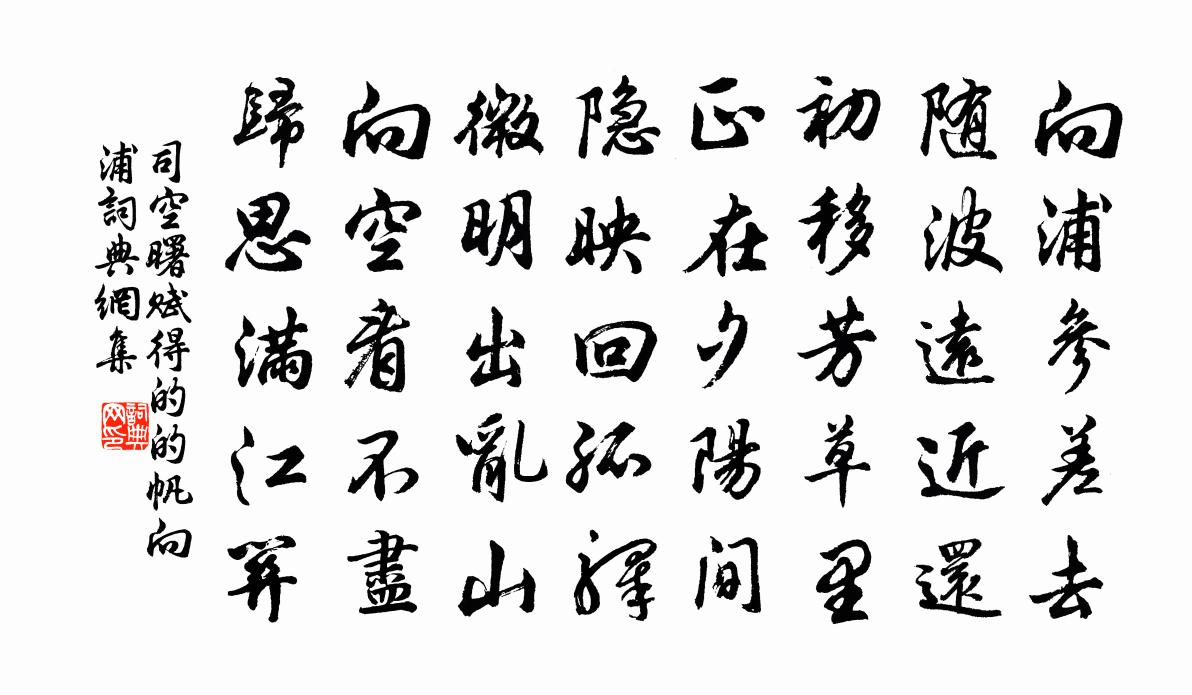 向浦參差去
随波遠近還
初移芳草里
正在夕陽間
隐映回孤驛
微明出亂山
向空看不盡
歸思滿江關
司空曙賦得的的帆向
浦詞典網集
詞典
网印